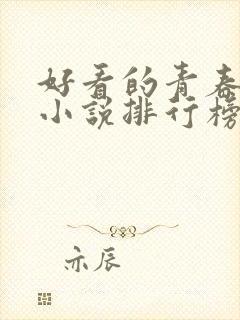 好看的青春
小说排行榜
亦辰